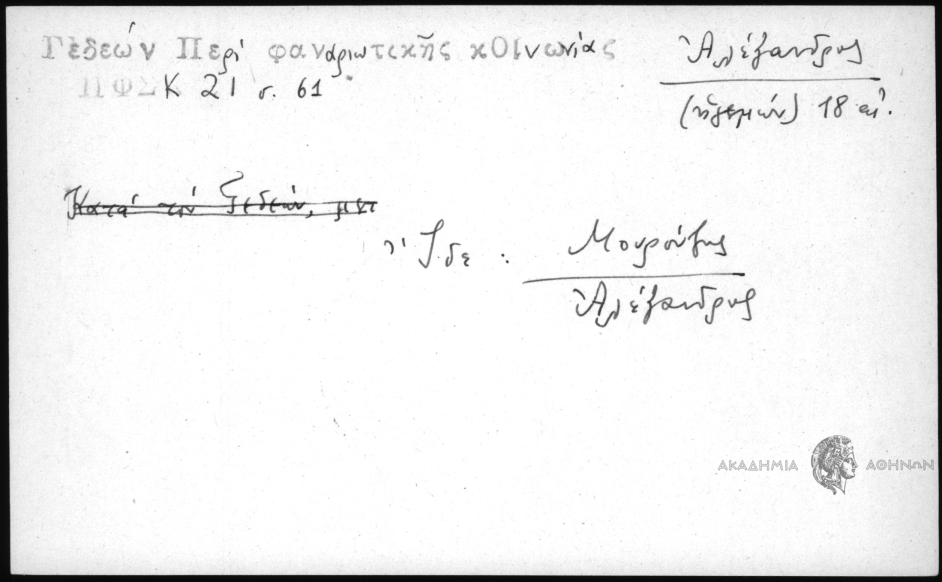 Γεδεών Περί φαναριωτικῆς κοινωνίας
ΠΦΣΚ 21 σ. 61
Ἀλέξανδρος
(ἡγεμών) 18 αἰ.
Κατά τόν Γεδεών, μετ
Ἴδε :
Μουρούζης
Ἀλέξανδρος
ΑΚΑΔΗΜΙΑ ΑΘΗΝΩΝ